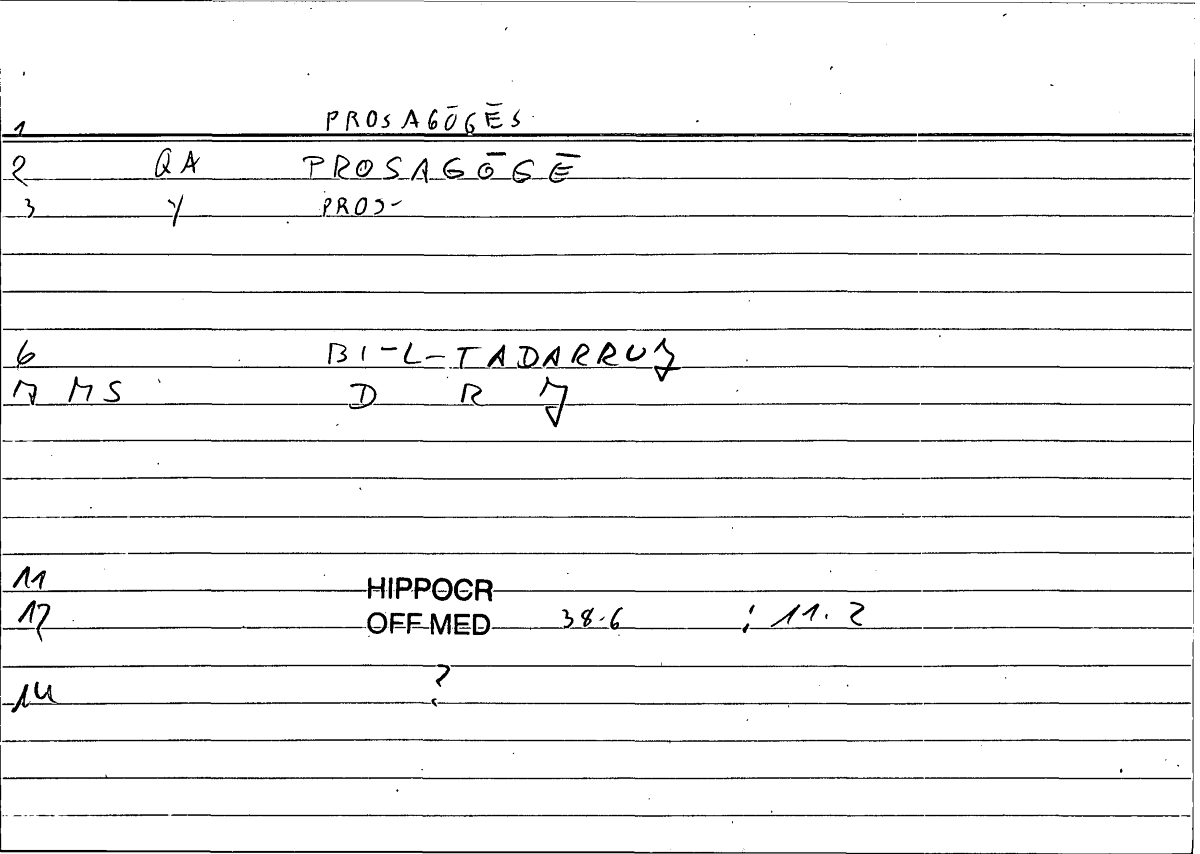 1 PROSAGŌGĒS
2 QA PROSAGŌGĒ
3 Y PROS-
6 BI-L-TADARRUǧ
7 MS D R ǧ
11 HIPPOCR
12 OFF-MED 38.6 ; 11.2
14 ?